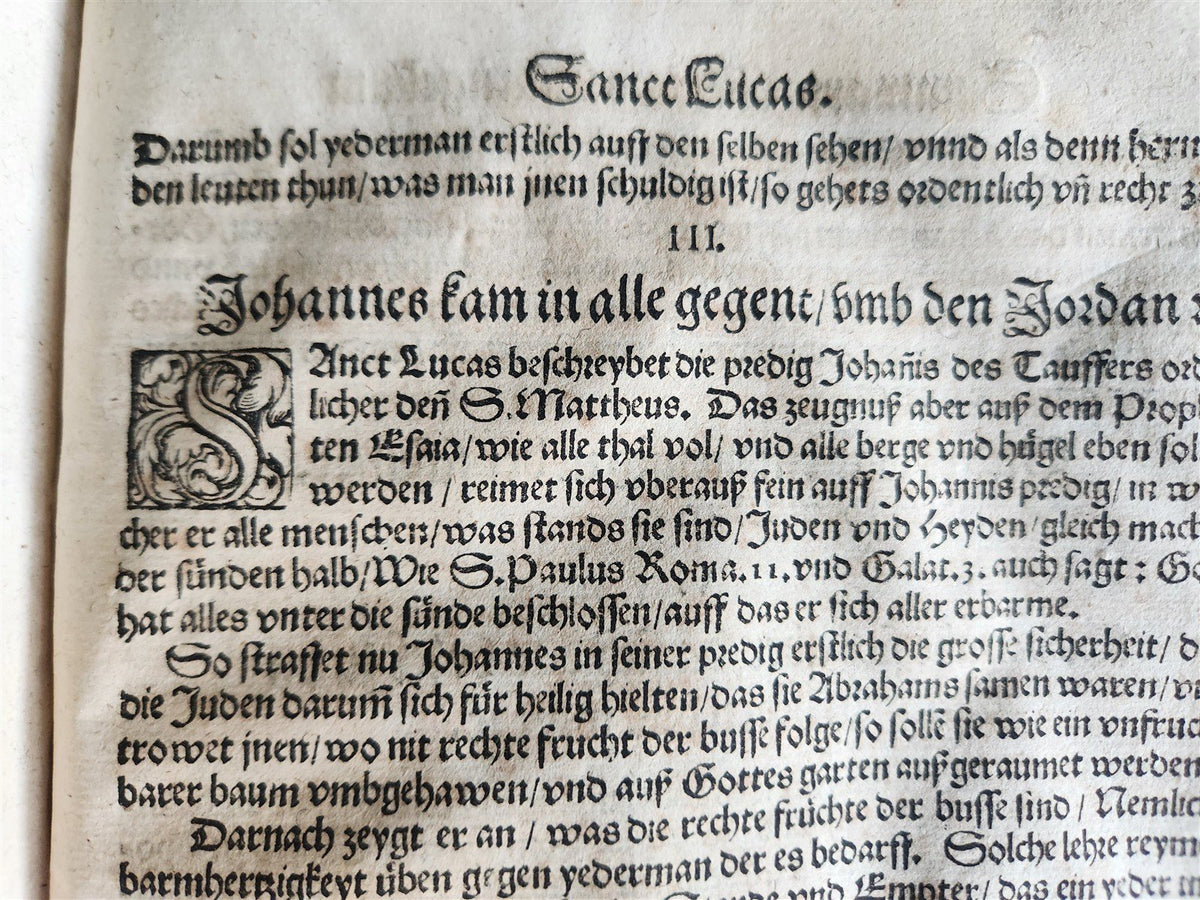 Sanct Lucas.
Darumb sol yederman erstlich auff den selben sehen/ vnnd als denn hern
den leuten thun/was man jnen schuldig ist/so gehets ordentlich vñ recht z
III.
Johannes kam in alle gegent/vmb den Jordan
SAnct Lucas beschreybet die predig Johañis des Tauffers ord
licher deñ S.Mattheus. Das zeugnuß aber auß dem Proph
ten Esaia/wie alle thal vol/ vnd alle berge vnd hügel eben sol
werden / reimet sich vberauß fein auff Johannis predig/ in w
cher er alle menschen/was stands sie sind/Juden vnd Heyden/gleich mach
der sünden halb/Wie S.Paulus Roma.11.vnd Galat.3.auch sagt: Go
hat alles vnter die sünde beschlossen/auff das er sich aller erbarme.
So straffet nu Johannes in seiner predig erstlich die grosse sicherheit/ d
die Juden darum̃ sich für heilig hielten/das sie Abrahams samen waren/vn
trowet jnen/wo nit rechte frucht der busse folge/so sollẽ sie wie ein vnfruch
barer baum vmbgehawen/vnd auß Gottes garten außgeraumet werden
Darnach zeygt er an / was die rechte früchte der busse sind / Nemlic
barmhertzigkeyt üben gegen yederman der es bedarff. Solche lehre reym
Stende vnd Empter/ das ein yeder in